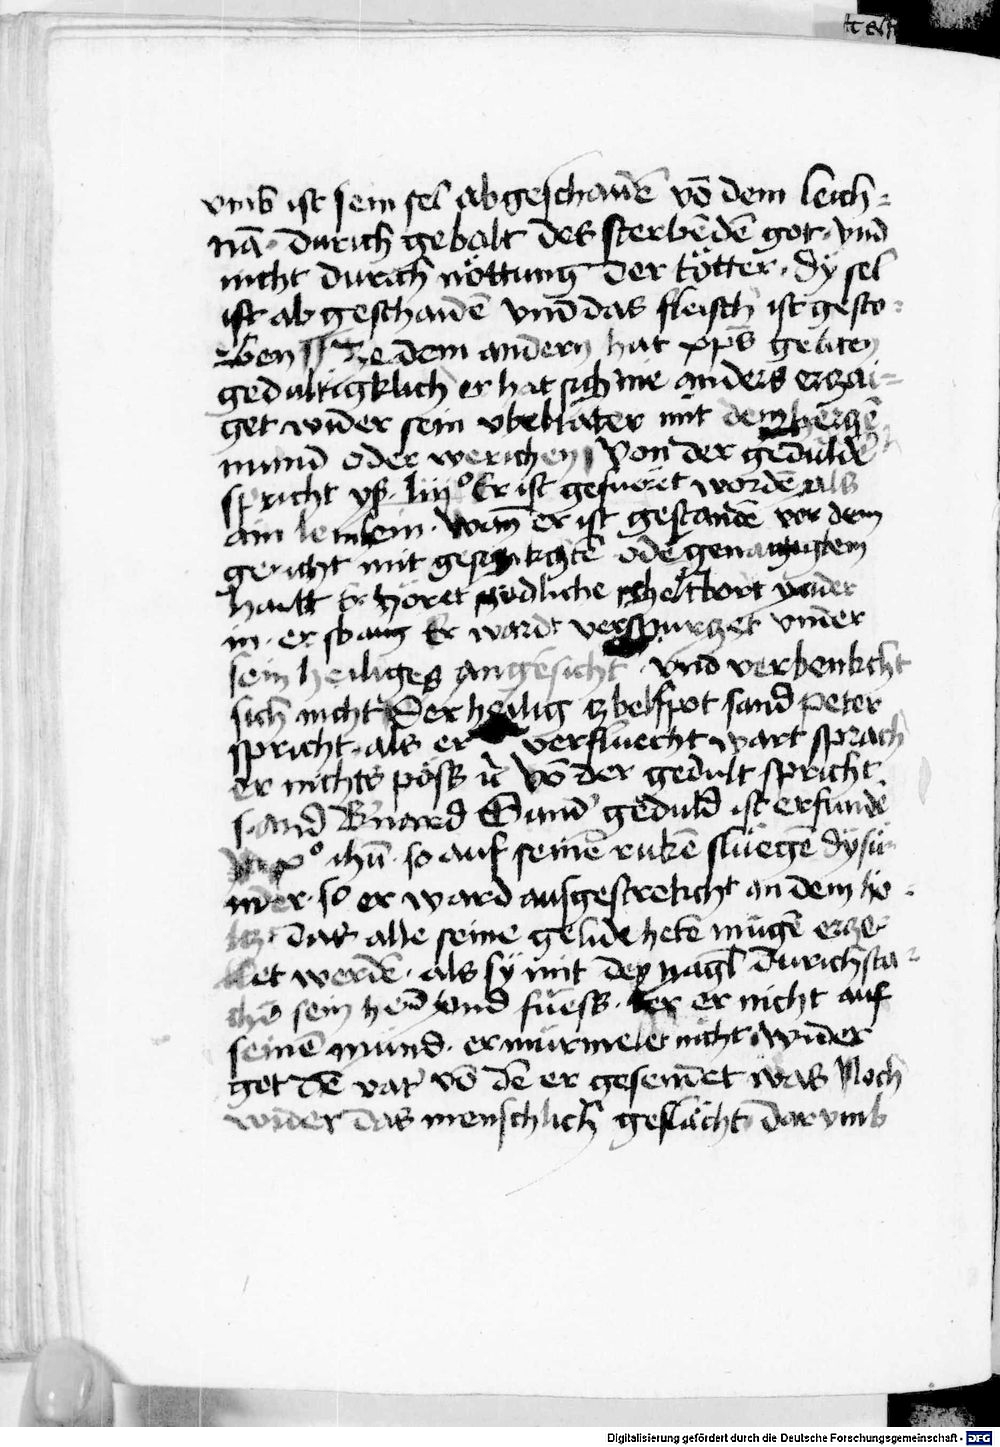 vmb ist sein sel abgeschaidē vō dem leich=
nā. durich gebalt des sterbēdē got. vnd
nicht durich nöttung der tötter. dy sel
ist abgeschaidē vnd das fleisch ist gesto=
rben Ze dem andern hat xps geliten
gedultigklich er hat sich nie anders erzai=
get wider sein vbeltäter mit dem herczē
mund oder werichen Von der geduldē
spricht ys. liii° Er ist gefueret wordē als
ain lemlein. wan er ist gestandē vor dem
gericht mit gesenkchtē oder genaigtem
haubt Er höret schedliche scheltbort wider
in. er sbaig Er wardt verspurczet vnder
sein heiliges angesicht. vnd verbenkcht
sich nicht Der heilig czbelfpot sand peter
spricht. als er verfluecht wart sprach
er nichts pöss Vō der gedult spricht
sand Bernard Sand geduld ist erfundē
in xº ihū. so auf seinē rukē sluegē dy sü=
nder. so er ward ausgestrekcht an dem ho=
lcz. dar alle seine gelide hetē mügē erzel
let werdē. als sy mit den nageln durichsta=
chē sein hend vnd fuess. er nicht auf
seinē mund. er murmelet nicht wider
got dē vater vō dē er gesendet was Noch
wider das menschlich geslächt darvmb
Digitalisierung gefördert durch die Deutsche Forschungsgemeinschaft - DFG